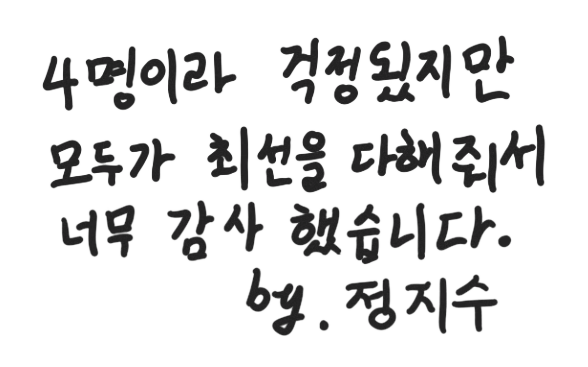 4명이라 걱정됬지만
모두가 최선을 다해줘서
너무 감사 했습니다.
by. 정지수